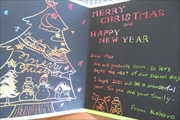 MERRY
CHRISTMAS
and
HAPPY
NEW YEAR
Dear
We will graduate soon. So let's
enjoy the rest of our school days!
I hope 2021 will be a wonderful
year for you and your family!
From Kokoro